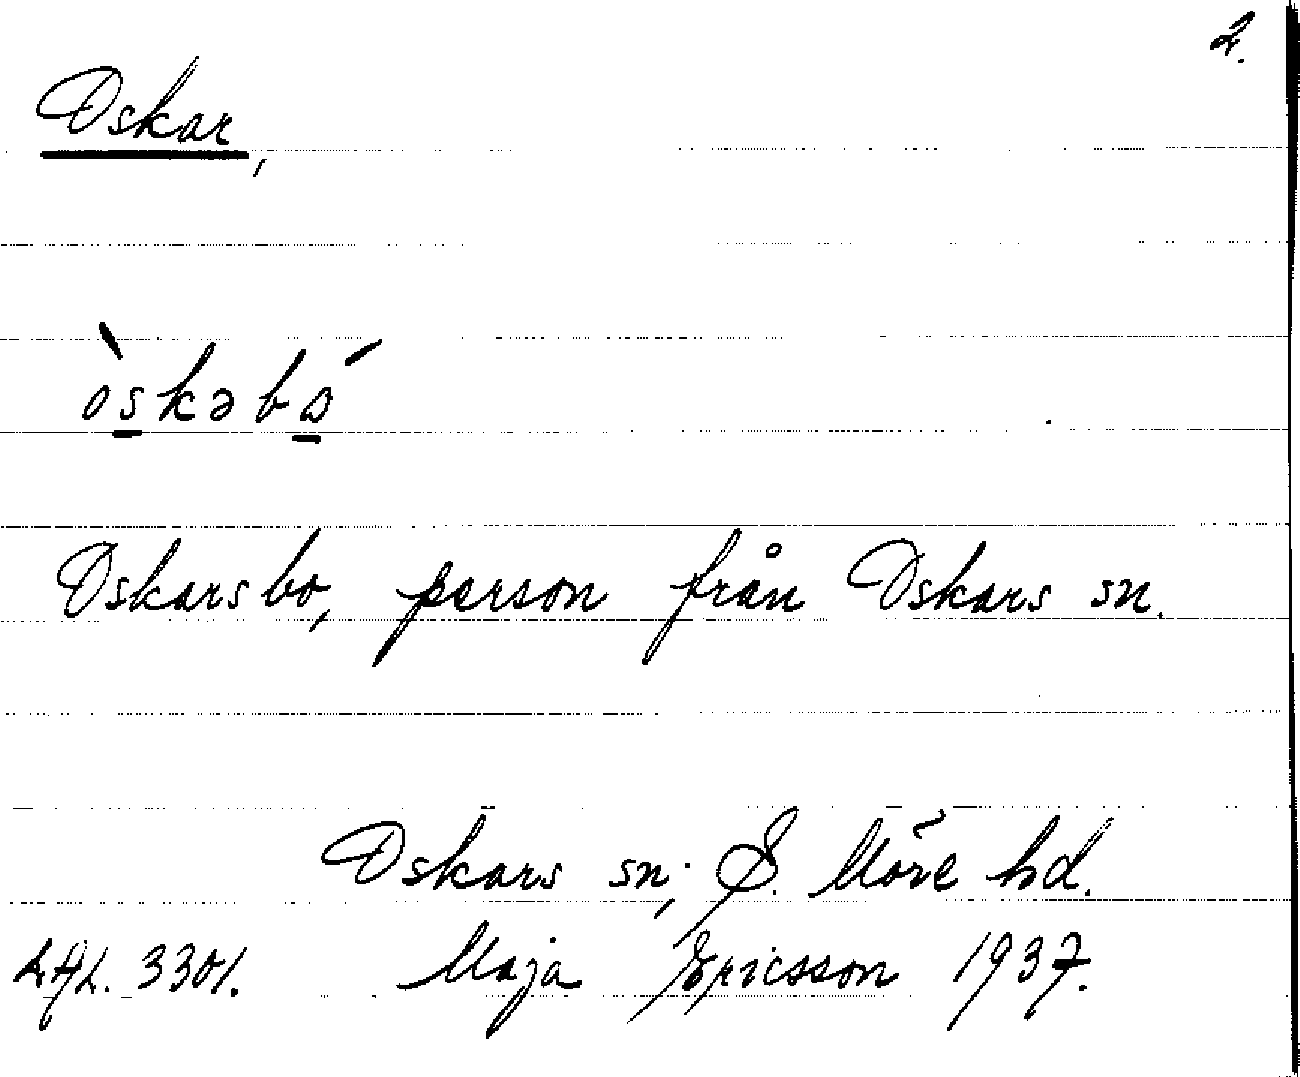 2.
Oskar,
òskəbó
Oskarsbo, person från Oskars sn.
Oskars sn; S. Möre hd.
3301. Maja Ericsson 1937.